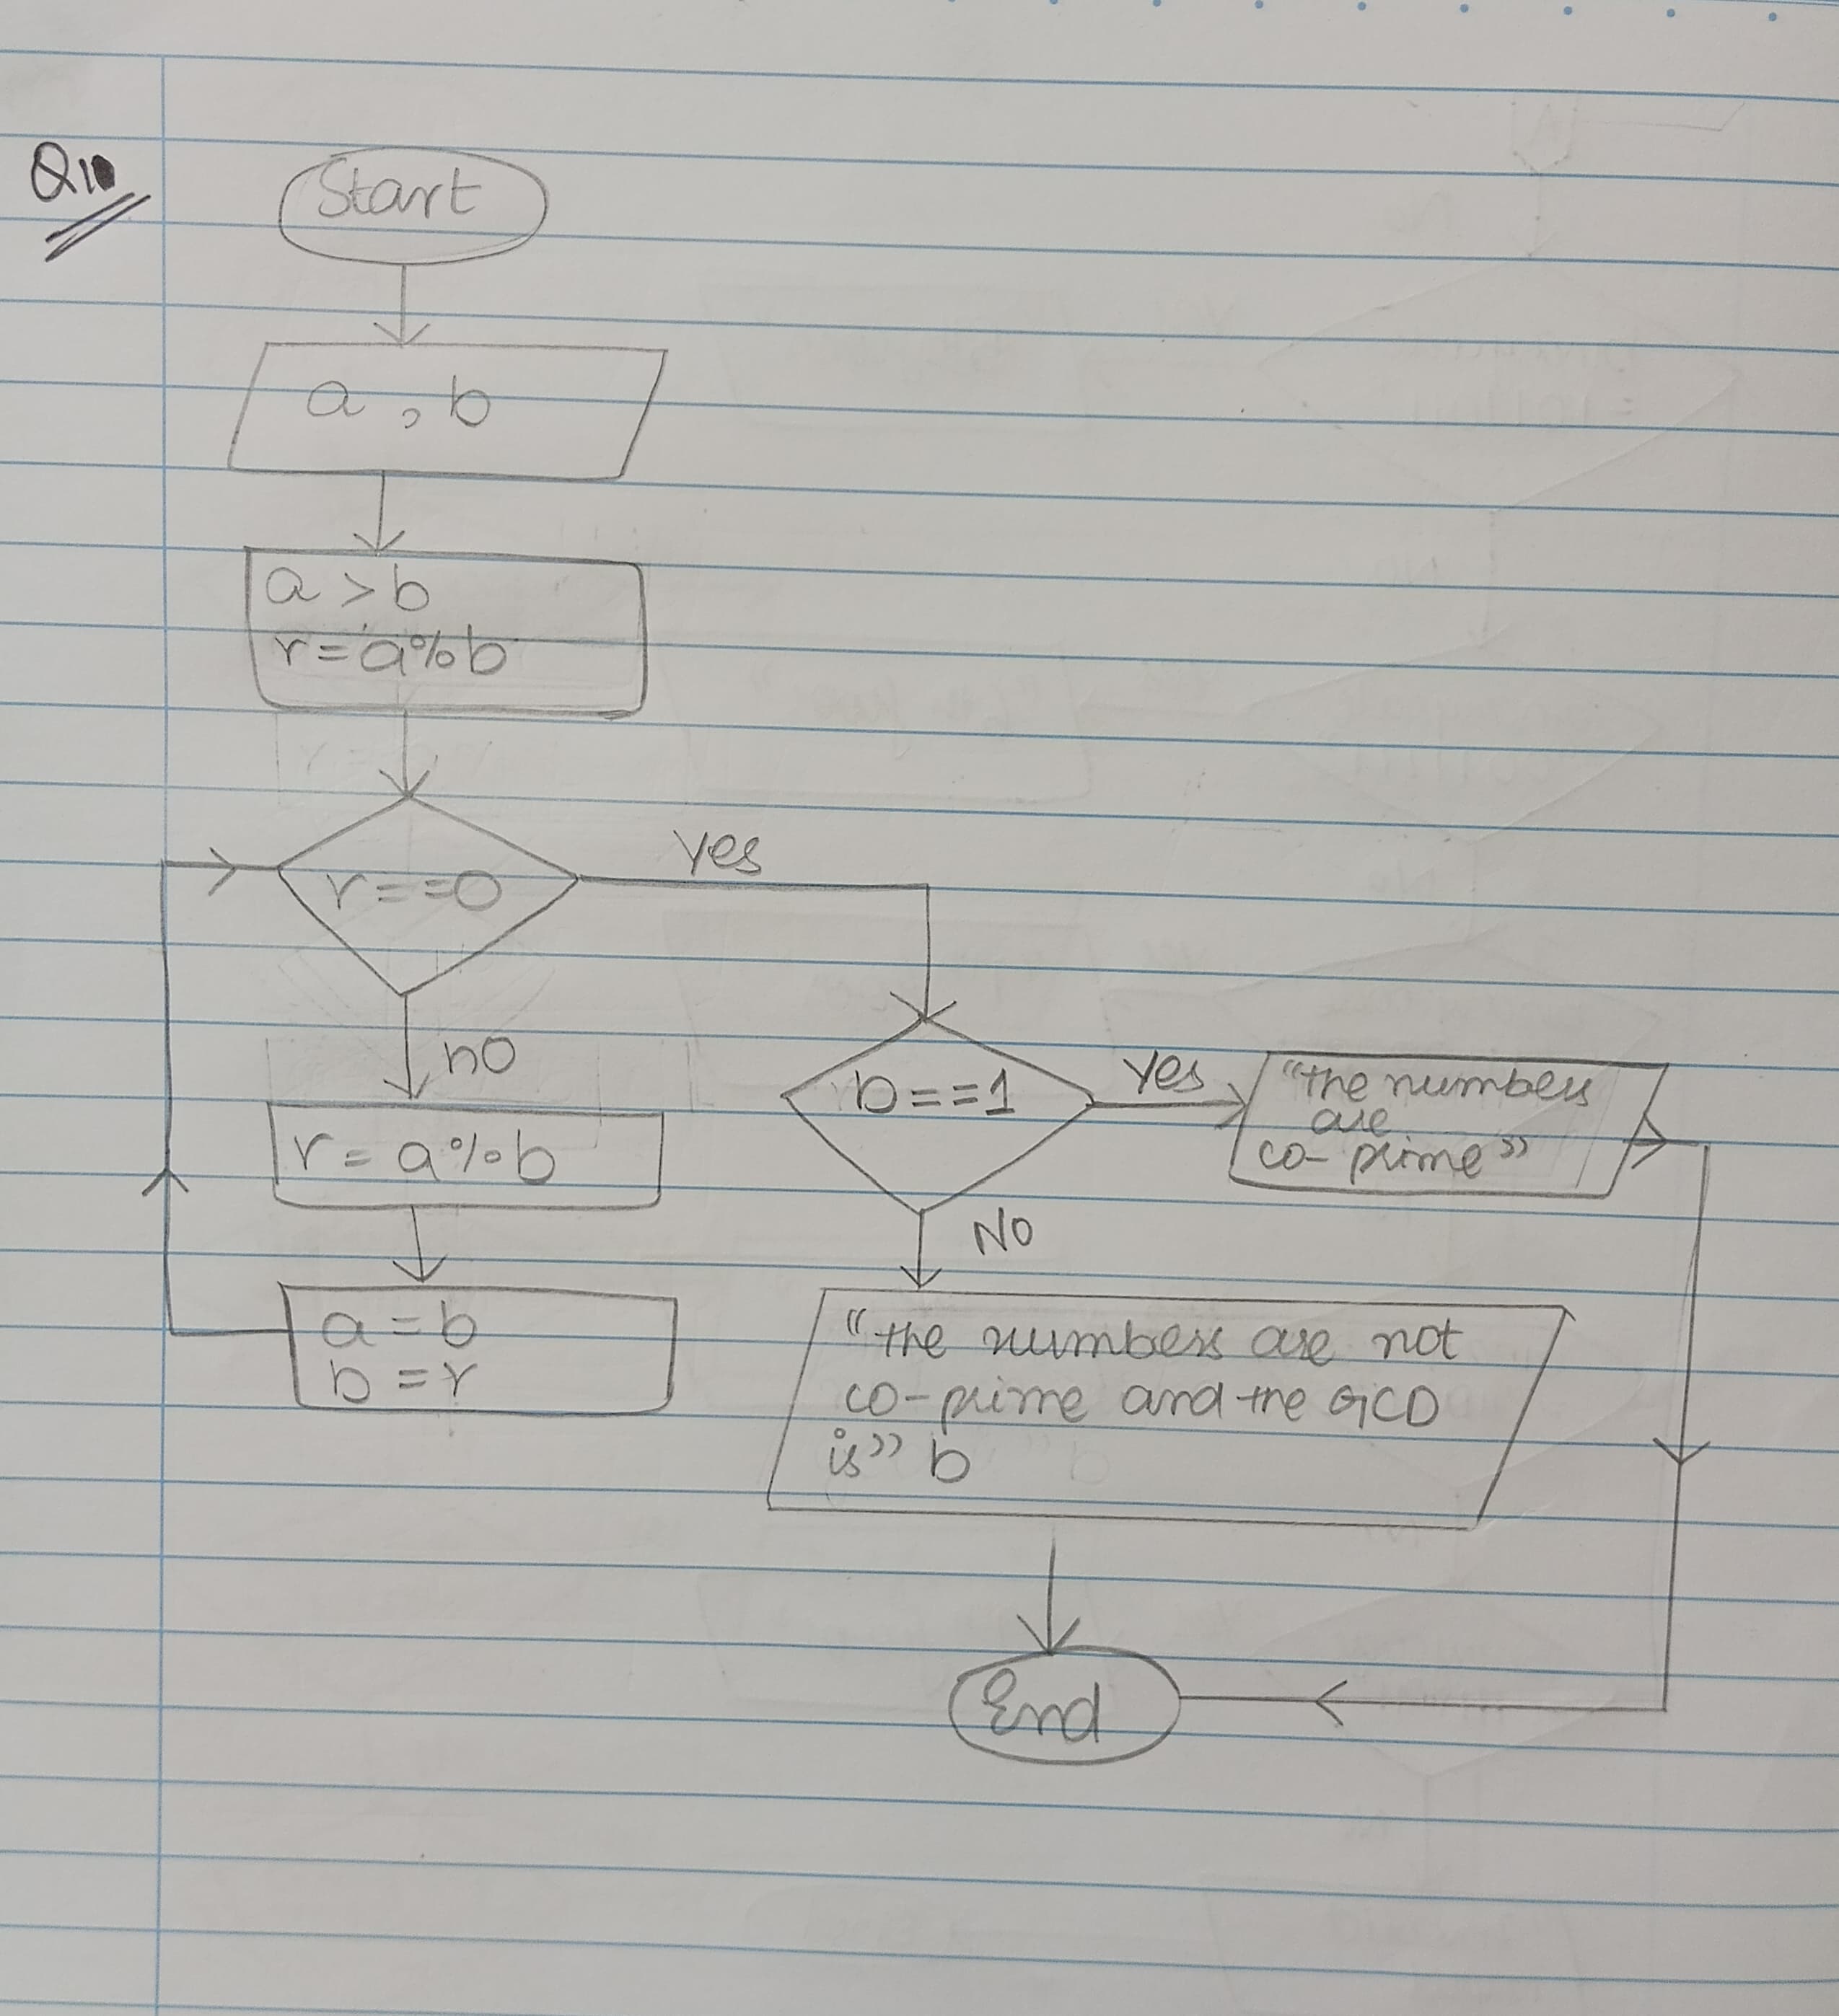 Q10
Start
a , b
a > b
r = a % b
r = = 0
yes
no
r = a % b
a = b
b = r
b = = 1
yes
"the numbers
are
co- prime"
NO
"the numbers are not
co-prime and the GCD
is" b
End